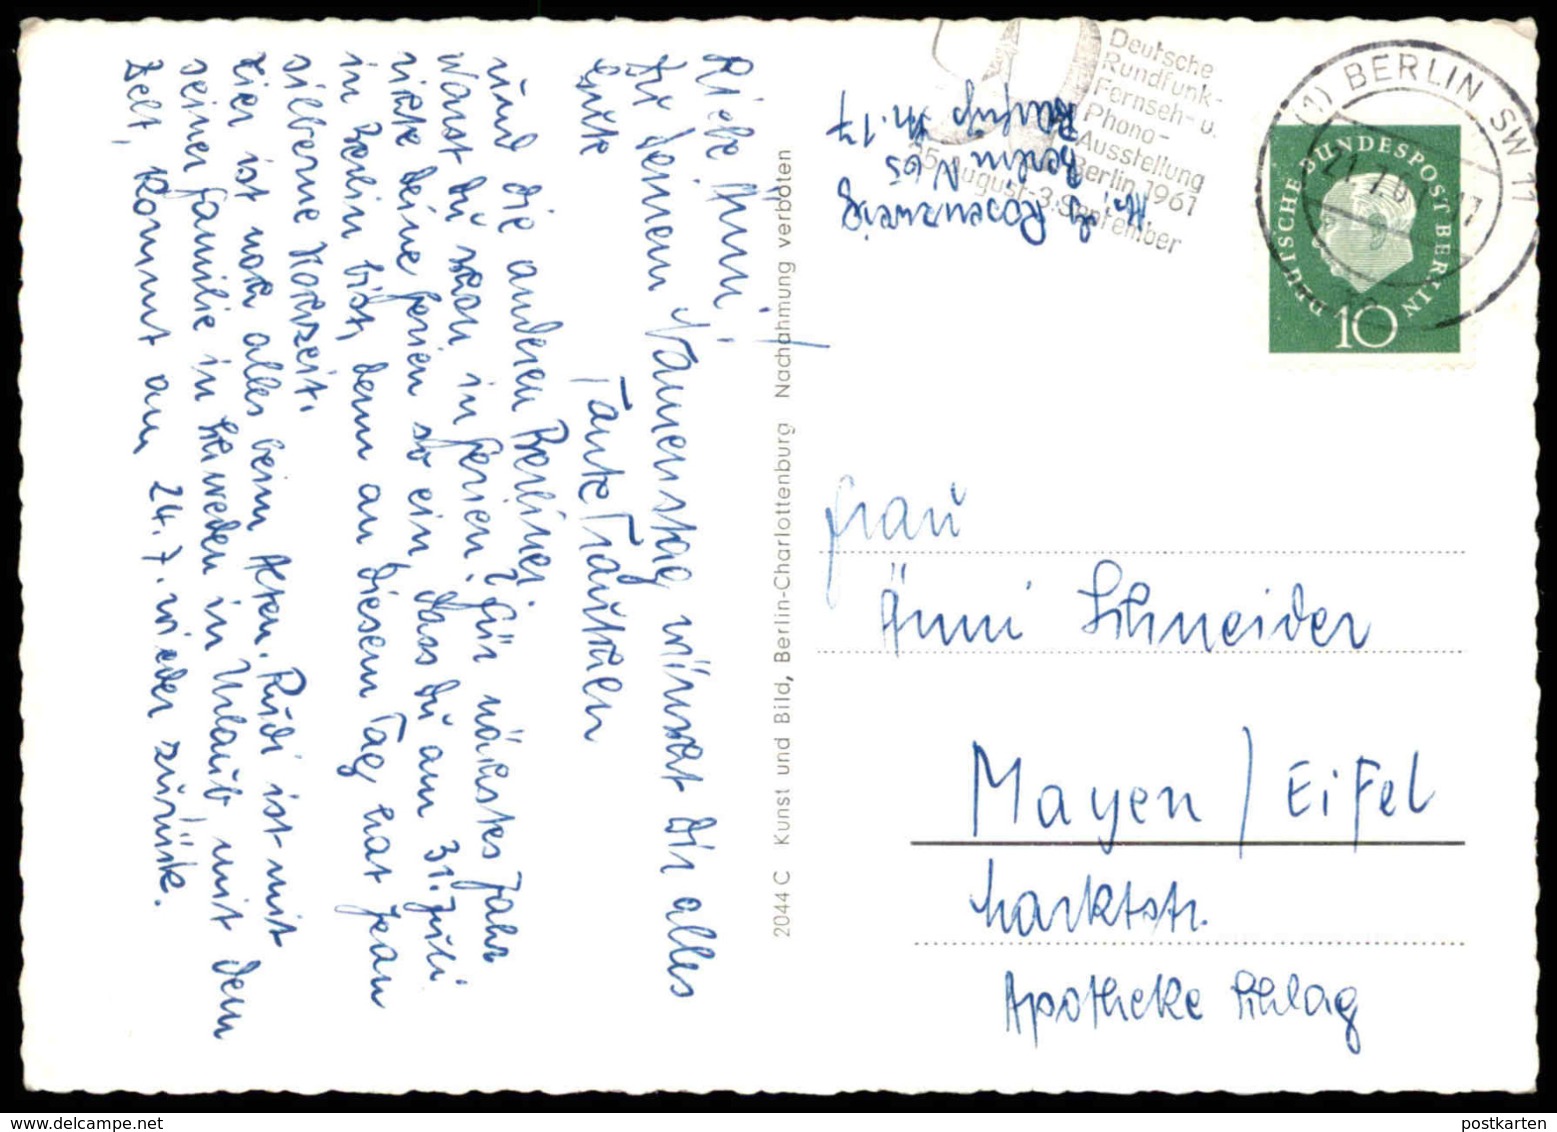 Liebe Änni!
Zu Deinem Namenstag wünscht Dir alles
Gute Tante Trautchen
und die anderen Berliner.
Warst Du schon in Ferien? Für nächstes Jahr
richte Deine Ferien so ein, dass Du am 31. Juli
in Berlin bist, denn an diesem Tag hat Jean
silberne Hochzeit.
Hier ist noch alles beim Alten. Rudi ist mit
seiner Familie in Schweden in Urlaub, mit dem
Zelt, kommt am 24.7. wieder zurück.
2044 C Kunst und Bild, Berlin-Charlottenburg Nachahmung verboten
Rosenzweig
Berlin N 65
Nr. 17
Deutsche
Rundfunk-
Fernseh- u.
Phono-
Ausstellung
Berlin 1961
25. August-3. September
(1) BERLIN SW 11
21.7.6
DEUTSCHE BUNDESPOST BERLIN
10
Frau
Änni Schneider
Mayen / Eifel
Marktstr.
Apotheke Schlag
postkarten